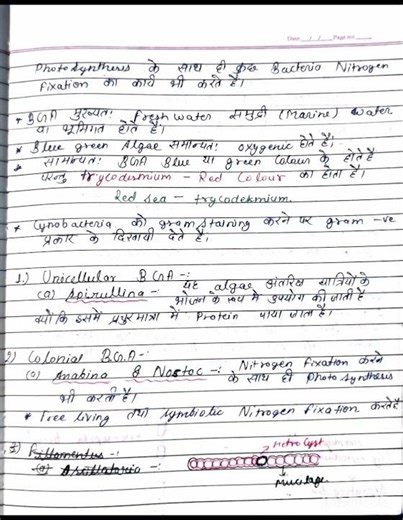 Date / / Page no.
Photosynthesis के साथ ही कुछ Bacteria Nitrogen
Fixation का कार्य भी करते है।
* BGA मुख्यतः Freshwater समुद्री (Marine) water
या भूमिगत होते है।
* Blue green Algae सामान्यतः oxygenic होते है।
* सामान्यतः BGA Blue या green Colour के होते है
परन्तु trycodesmium - Red Colour का होता है।
Red sea - trycodekmium.
* Cynobacteria को gram staining करने पर gram -ve
प्रकार के दिखायी देते है।
1.) Unicellular BGA -:
(a) Spirullina -: यह algae अंतरिक्ष यात्रियों के
भोजन के रूप में उपयोग की जाती है
क्योंकि इसमें प्रचुर मात्रा में Protein पाया जाता है।
2) Colonial BGA -:
(a) Anabina & Nostoc -: Nitrogen fixation करने
के साथ ही Photosynthesis
भी करती है।
* Free living तथा symbiotic Nitrogen fixation करते है
3) Filamentus -:
Hetro Cyst
(a) Assillatoria -:
Mucilage